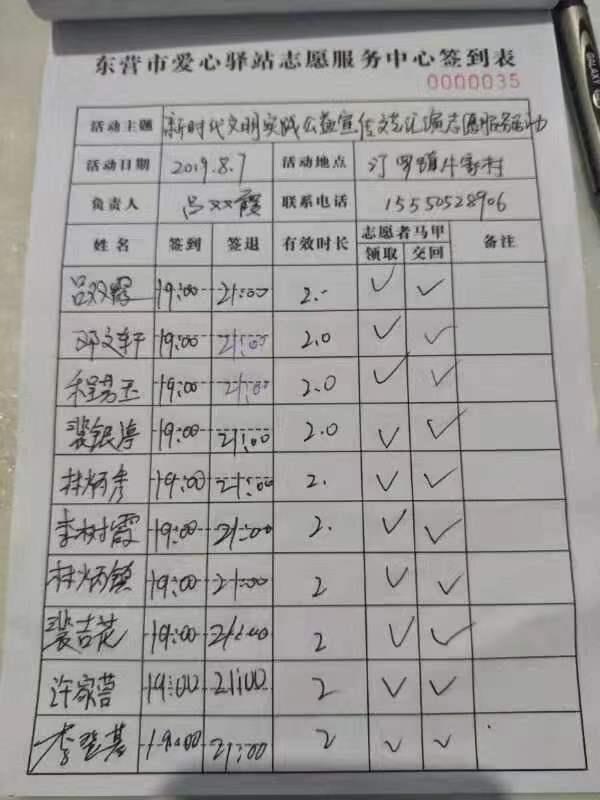 东营市爱心驿站志愿服务中心签到表
0000035
活动主题 新时代文明实践公益宣传文艺汇演志愿服务活动
活动日期 2019.8.7 活动地点 汀罗镇牛家村
负责人 吕双霞 联系电话 15550528906
姓名 签到 签退 有效时长 志愿者马甲 备注
领取 交回
吕双霞 19:00 21:00 2. ✓ ✓
邓文轩 19:00 21:00 2.0 ✓ ✓
程芳玉 19:00 21:00 2.0 ✓ ✓
裴银涛 19:00 21:00 2.0 ✓ ✓
林炳彦 19:00 21:00 2. ✓ ✓
李树霞 19:00 21:00 2. ✓ ✓
林炳镇 19:00 21:00 2 ✓ ✓
裴吉花 19:00 21:00 2 ✓ ✓
许家营 19:00 21:00 2 ✓ ✓
李登基 19:00 21:00 2 ✓ ✓
GALAXY